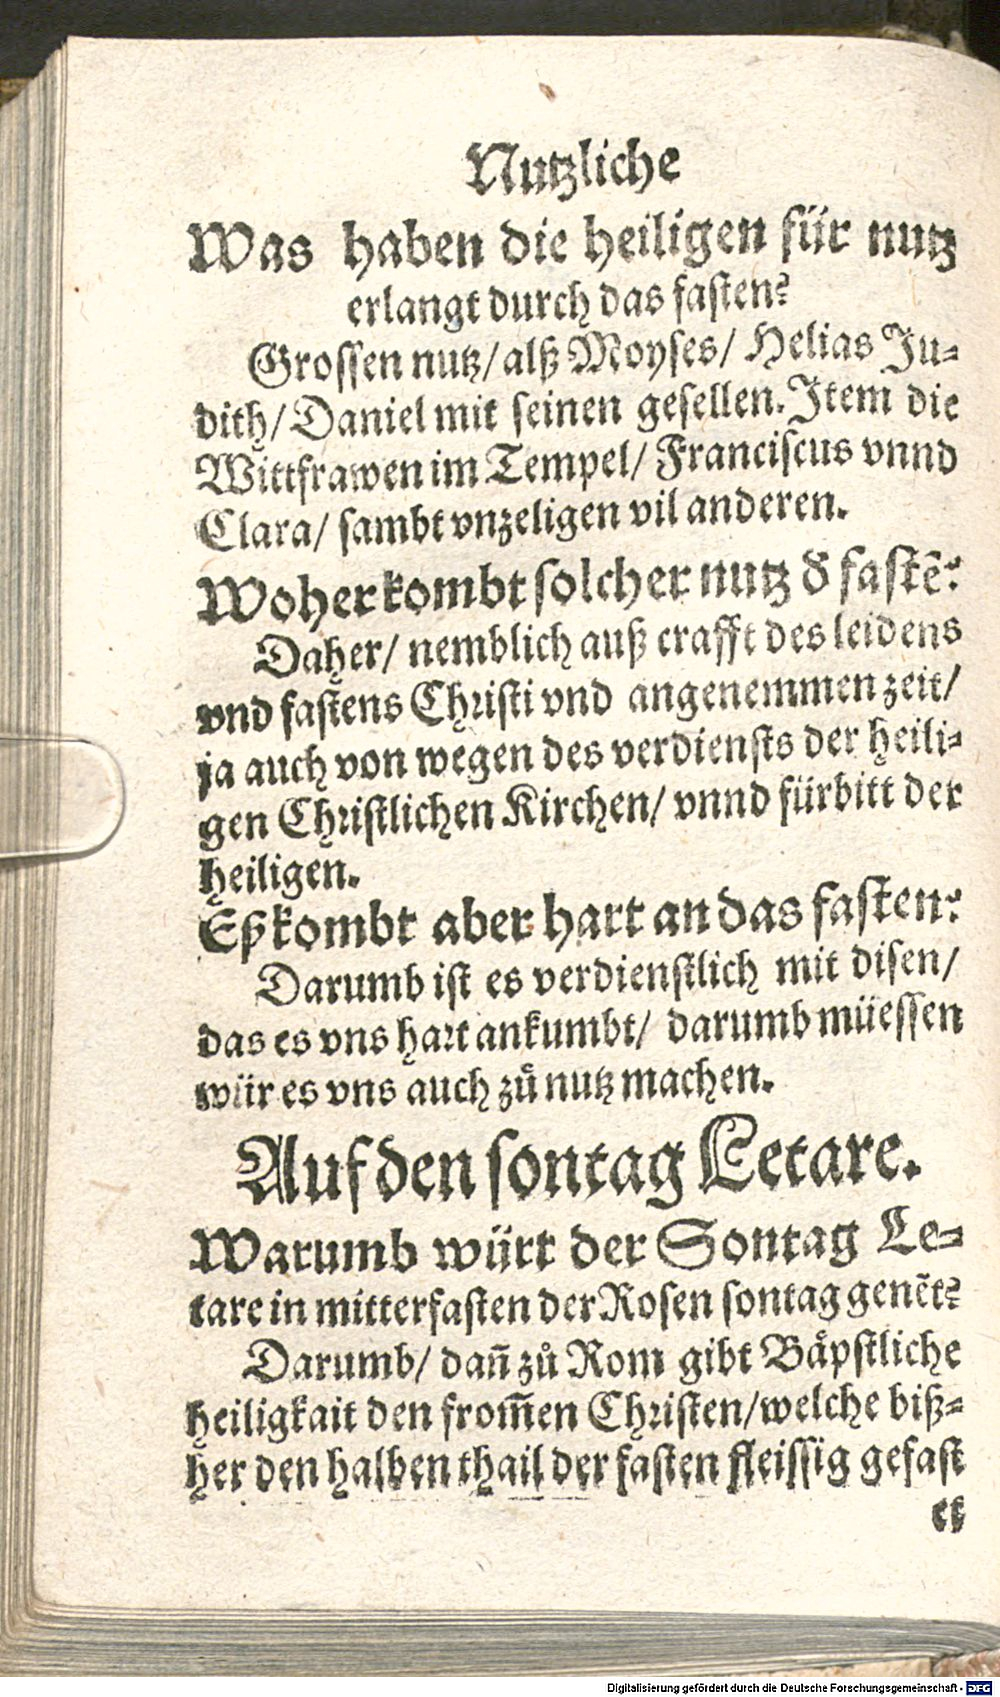 Nutzliche
Was haben die heiligen für nutz
erlangt durch das fasten?
Grossen nutz/ alß Moyses/ Helias Ju-
dith/ Daniel mit seinen gesellen. Item die
Wittfrawen im Tempel/ Franciscus vnnd
Clara/ sambt vnzeligen vil anderen.
Woher kombt solcher nutz ď fastẽ?
Daher/ nemblich auß crafft des leidens
vnd fastens Christi vnd angenemmen zeit/
ja auch von wegen des verdiensts der heili-
gen Christlichen Kirchen/ vnnd fürbitt der
heiligen.
Eß kombt aber hart an das fasten?
Darumb ist es verdienstlich mit disen/
das es vns hart ankumbt/ darumb müessen
wür es vns auch zů nutz machen.
Auf den sontag Letare.
Warumb würt der Sontag Le-
tare in mitterfasten der Rosen sontag genẽt?
Darumb/ dañ zů Rom gibt Bäpstliche
heiligkait den from̃en Christen/ welche biß-
her den halben thail der fasten fleissig gefast
et
Digitalisierung gefördert durch die Deutsche Forschungsgemeinschaft - DFG